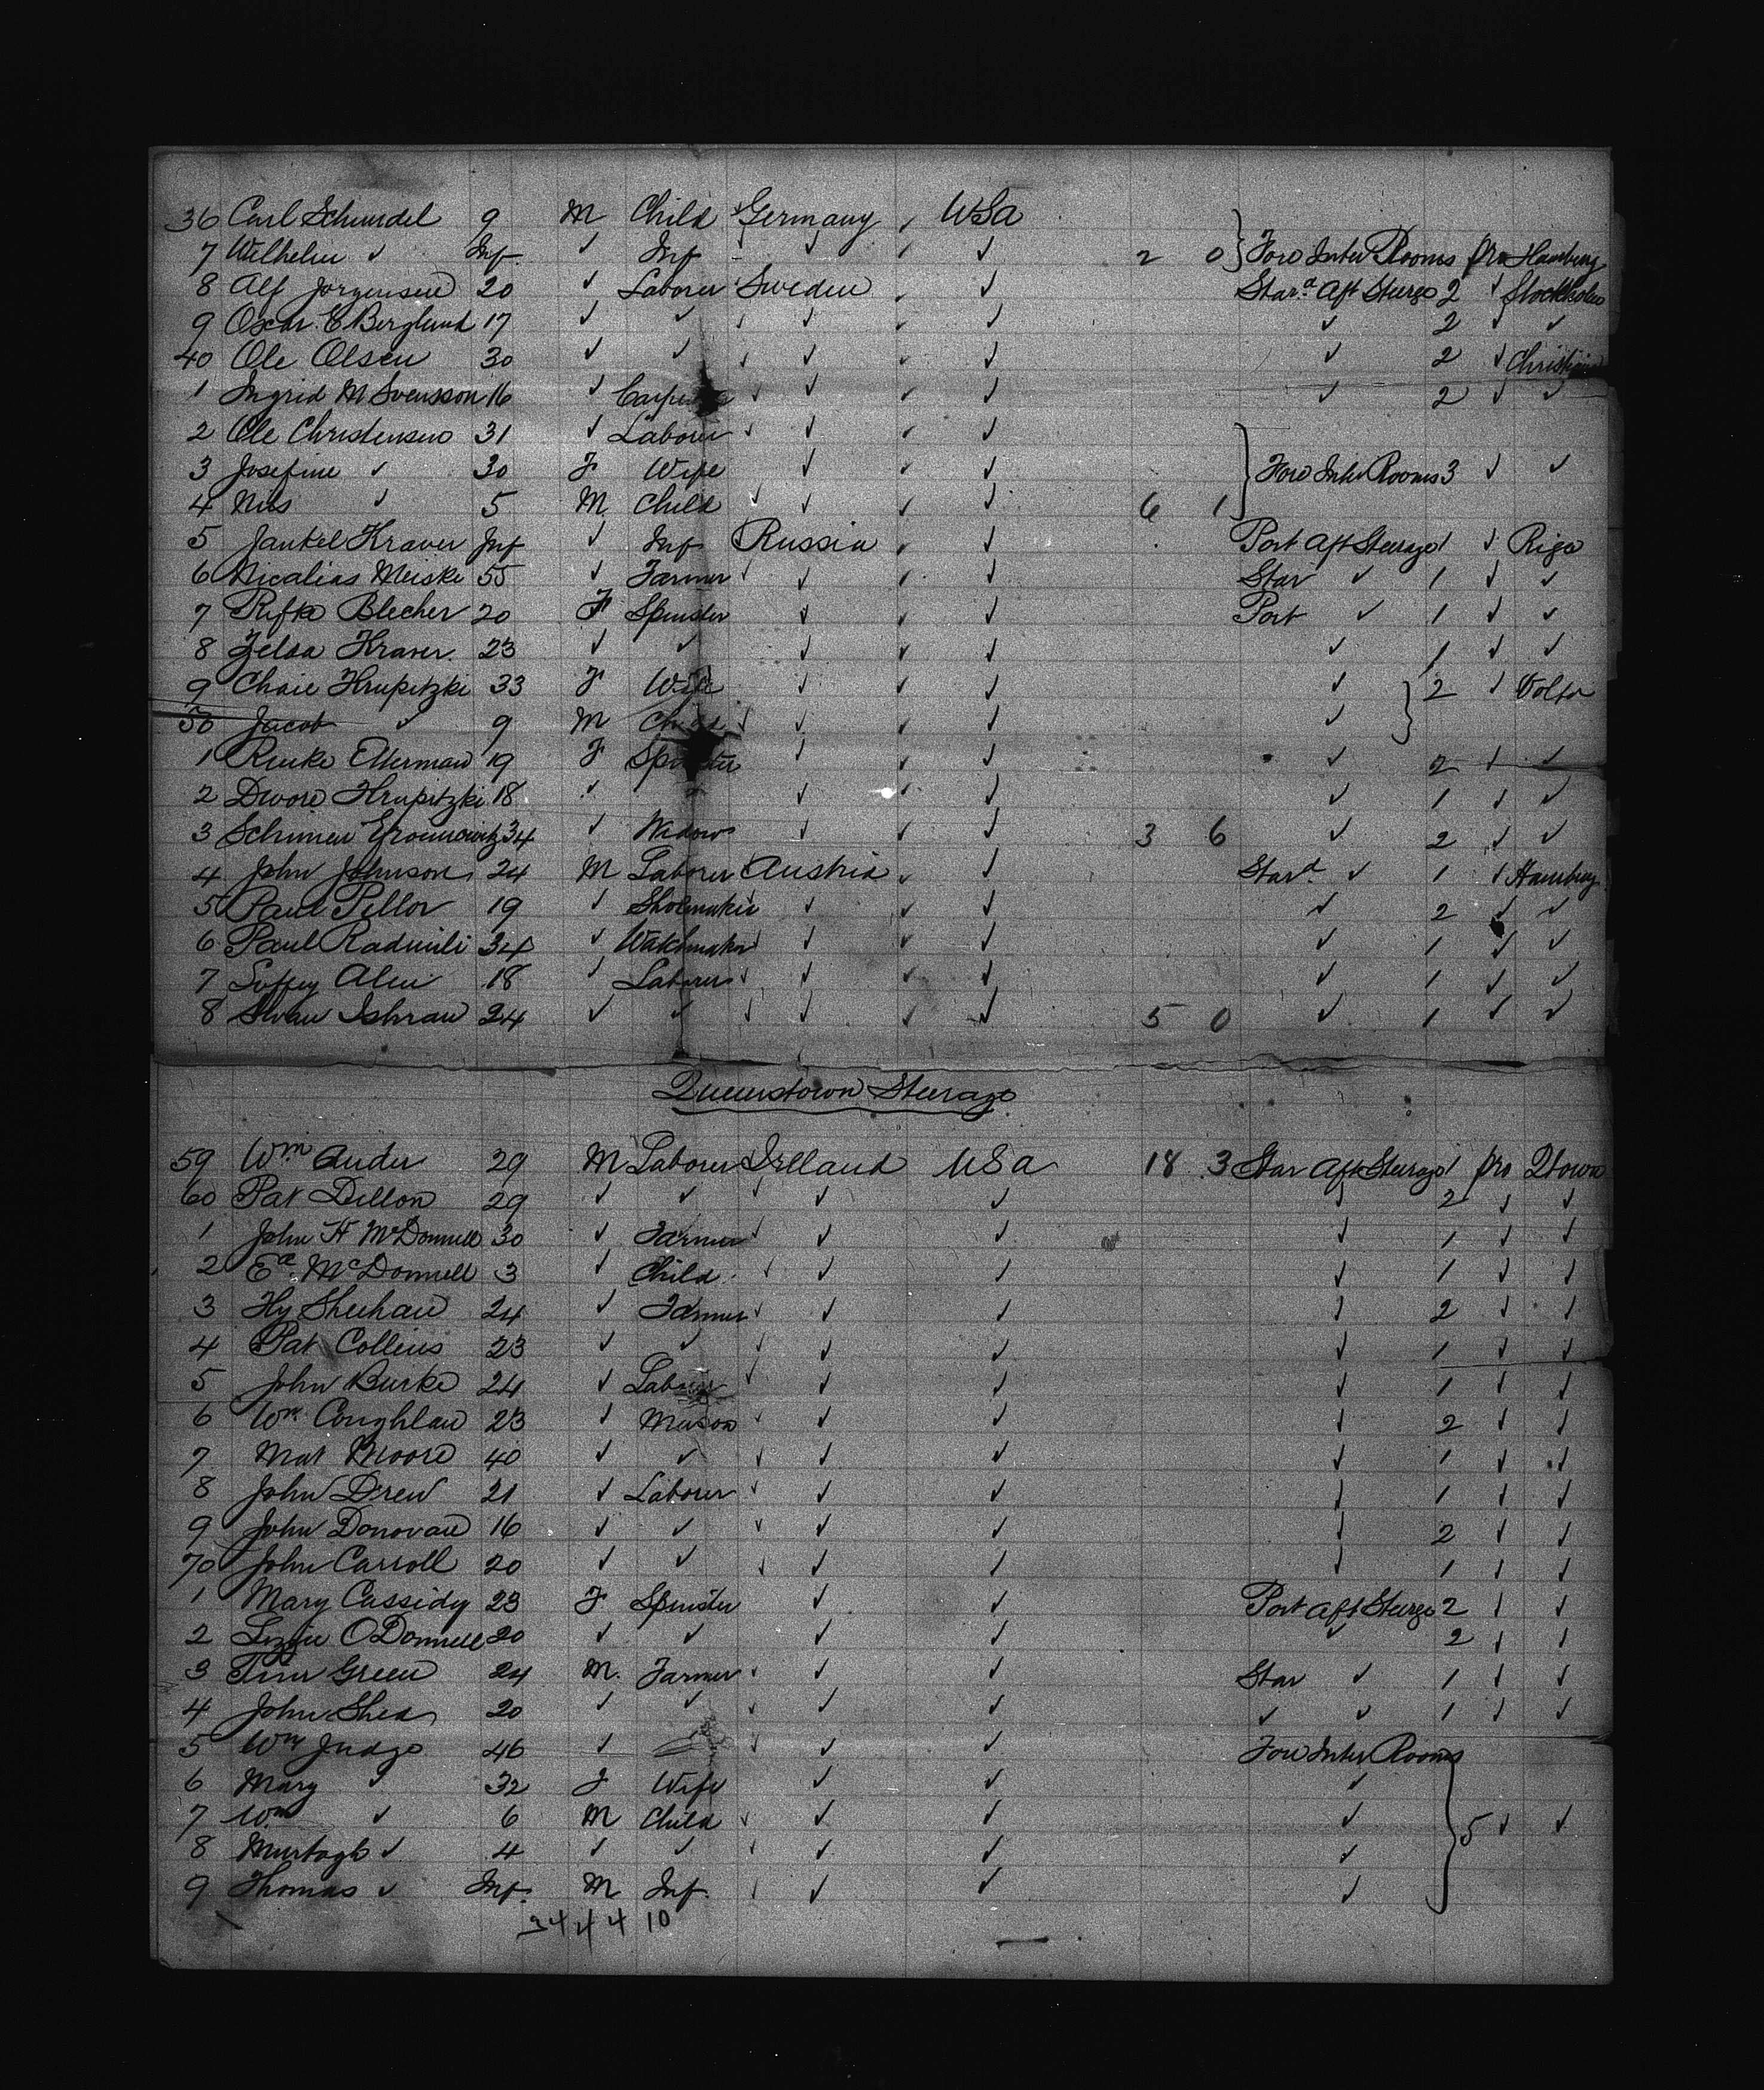 36 Carl Schundel 9 M Child Germany ✓ USa
7 Wilhelm ✓ Inf. ✓ Inf ✓ ✓ ✓ 2 0 } Forw Inter Rooms pro Hamburg
8 Alf Jorgensen 20 ✓ Laborer Sweden ✓ ✓ Star.d Aft Steerge 2 ✓ Stockholm
9 Oscar E Berglund 17 ✓ ✓ ✓ ✓ ✓ ✓ ✓ 2 ✓ ✓
40 Ole Olsen 30 ✓ ✓ ✓ ✓ ✓ ✓ ✓ 2 ✓
1 Ingrid M Svensson 16 ✓ ✓ ✓ ✓ ✓ ✓ 2 ✓ ✓
2 Ole Christensen 31 ✓ Laborer ✓ ✓ ✓ ✓
3 Josefine ✓ 30 F Wife ✓ ✓ ✓ } Forw Inter Rooms 3 ✓ ✓
4 Nils ✓ 5 M Child ✓ ✓ ✓ ✓ 6 1
5 Jankel Kraver Inf ✓ Inf Russia ✓ ✓ Port Aft Steerage 1 ✓ Riga
6 Nicalias Meiske 55 ✓ Farmer ✓ ✓ ✓ ✓ Star ✓ 1 ✓ ✓
7 Rifke Blecher 20 F Spinster ✓ ✓ ✓ Port ✓ 1 ✓ ✓
8 Zelda Kraver. 23 ✓ ✓ ✓ ✓ ✓ ✓ 1 ✓ ✓
9 Chaie Krupitzki 33 F Wife ✓ ✓ ✓ ✓ } 2 ✓
50 Jacob ✓ 9 M Child ✓ ✓ ✓ ✓ ✓
1 Ellerman 19 F Spinster ✓ ✓ ✓ ✓ 2 ✓ ✓
2 Dwore Krupitzki 18 ✓ ✓ ✓ ✓ 1 ✓ ✓
3 Schimen 34 ✓ Widow ✓ ✓ ✓ 3 6 ✓ 2 ✓ ✓
4 John Johnson 24 M Laborer Austria ✓ ✓ Star.d ✓ 1 ✓ Hamburg
5 Paul Pellor 19 ✓ Shoemaker ✓ ✓ ✓ ✓ 2 ✓ ✓
6 Paul Radmili 34 ✓ Watchmaker ✓ ✓ ✓ ✓ ✓ 1 ✓ ✓
7 Alen 18 ✓ Laborer ✓ ✓ ✓ ✓ ✓ 1 ✓ ✓
8 24 ✓ ✓ ✓ ✓ ✓ ✓ 5 0 ✓ 1 ✓ ✓
Queenstown Steerage
59 Wm Auder 29 M Laborer Irelland USa 18 3 Star Aft Steerage 1 pro Qtown
60 Pat Dillon 29 ✓ ✓ ✓ ✓ ✓ 2 ✓ ✓
1 John H McDonnell 30 ✓ Farmer ✓ ✓ ✓ ✓ 1 ✓ ✓
2 Ed. McDonnell 3 ✓ Child ✓ ✓ ✓ ✓ 1 ✓ ✓
3 Hy Sheehan 24 ✓ Farmer ✓ ✓ ✓ ✓ 2 ✓ ✓
4 Pat Collins 23 ✓ ✓ ✓ ✓ ✓ ✓ 1 ✓ ✓
5 John Burke 24 ✓ Laborer ✓ ✓ ✓ ✓ 1 ✓ ✓
6 Wm. Coughlan 23 ✓ Mason ✓ ✓ ✓ ✓ 2 ✓ ✓
7 Mat Moore 40 ✓ ✓ ✓ ✓ ✓ ✓ 1 ✓ ✓
8 John Drew 21 ✓ Laborer ✓ ✓ ✓ ✓ 1 ✓ ✓
9 John Donovan 16 ✓ ✓ ✓ ✓ ✓ ✓ 2 ✓ ✓
70 John Carroll 20 ✓ ✓ ✓ ✓ ✓ ✓ 1 ✓ ✓
1 Mary Cassidy 23 F Spinster ✓ ✓ Port Aft Steerge 2 ✓ ✓
2 Lizzie O'Donnell 20 ✓ ✓ ✓ ✓ ✓ 2 ✓ ✓
3 Tim Green 24 M. Farmer ✓ ✓ ✓ Star ✓ 1 ✓ ✓
4 John Shea 20 ✓ ✓ ✓ ✓ ✓ ✓ 1 ✓ ✓
5 Wm Judge 46 ✓ ✓ ✓ ✓ Forw Inter Rooms
6 Mary ✓ 32 F Wife ✓ ✓ ✓
7 Wm ✓ 6 M Child ✓ ✓ ✓ ✓ } 5 ✓ ✓
8 Murtagh ✓ 4 ✓ ✓ ✓ ✓ ✓ ✓
9 Thomas ✓ Inf. M Inf. ✓ ✓ ✓ ✓
34 4 4 10